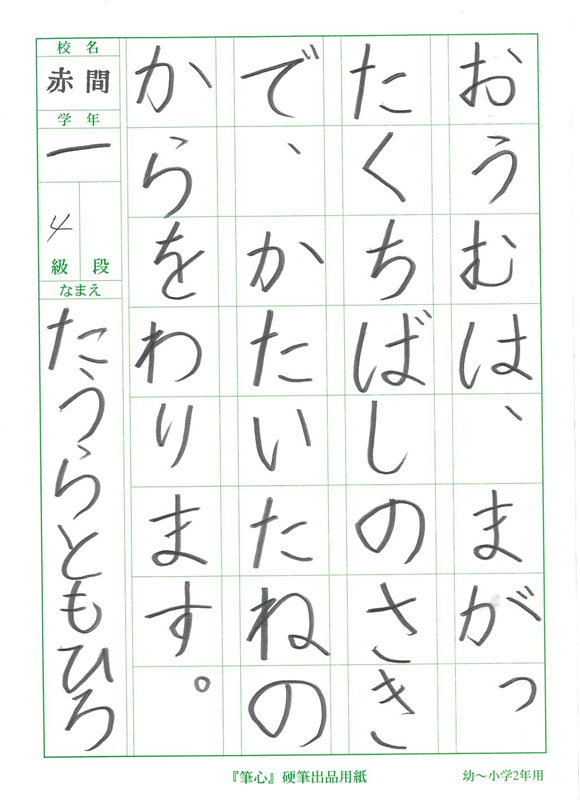 おうむは、まがっ
たくちばしのさき
で、かたいたねの
からをわります。
校名
赤間
学年
一
4
級 段
なまえ
たうらともひろ
『筆心』硬筆出品用紙
幼～小学2年用